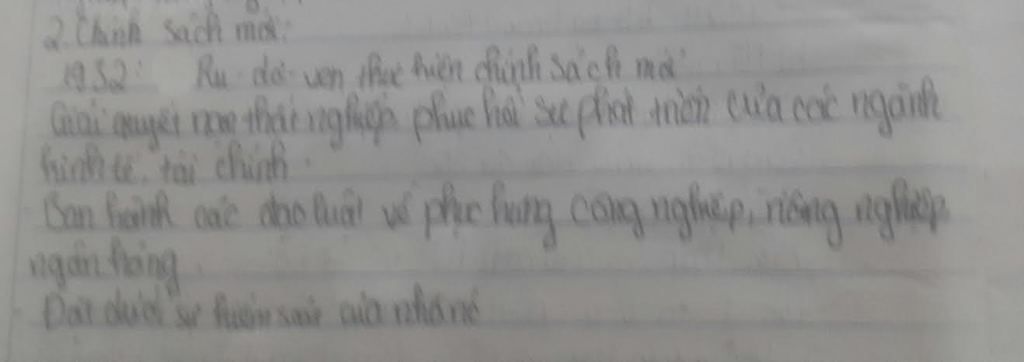 2. Chính sách mới:
1932: Ru dơ ven thực hiện chính sách mới
Giải quyết nạn thất nghiệp phục hồi sự phát triển của các ngành
kinh tế, tài chính.
Ban hành các đạo luật về phục hưng công nghiệp, nông nghiệp
ngân hàng
Đặt dưới sự kiểm soát của nhà nc